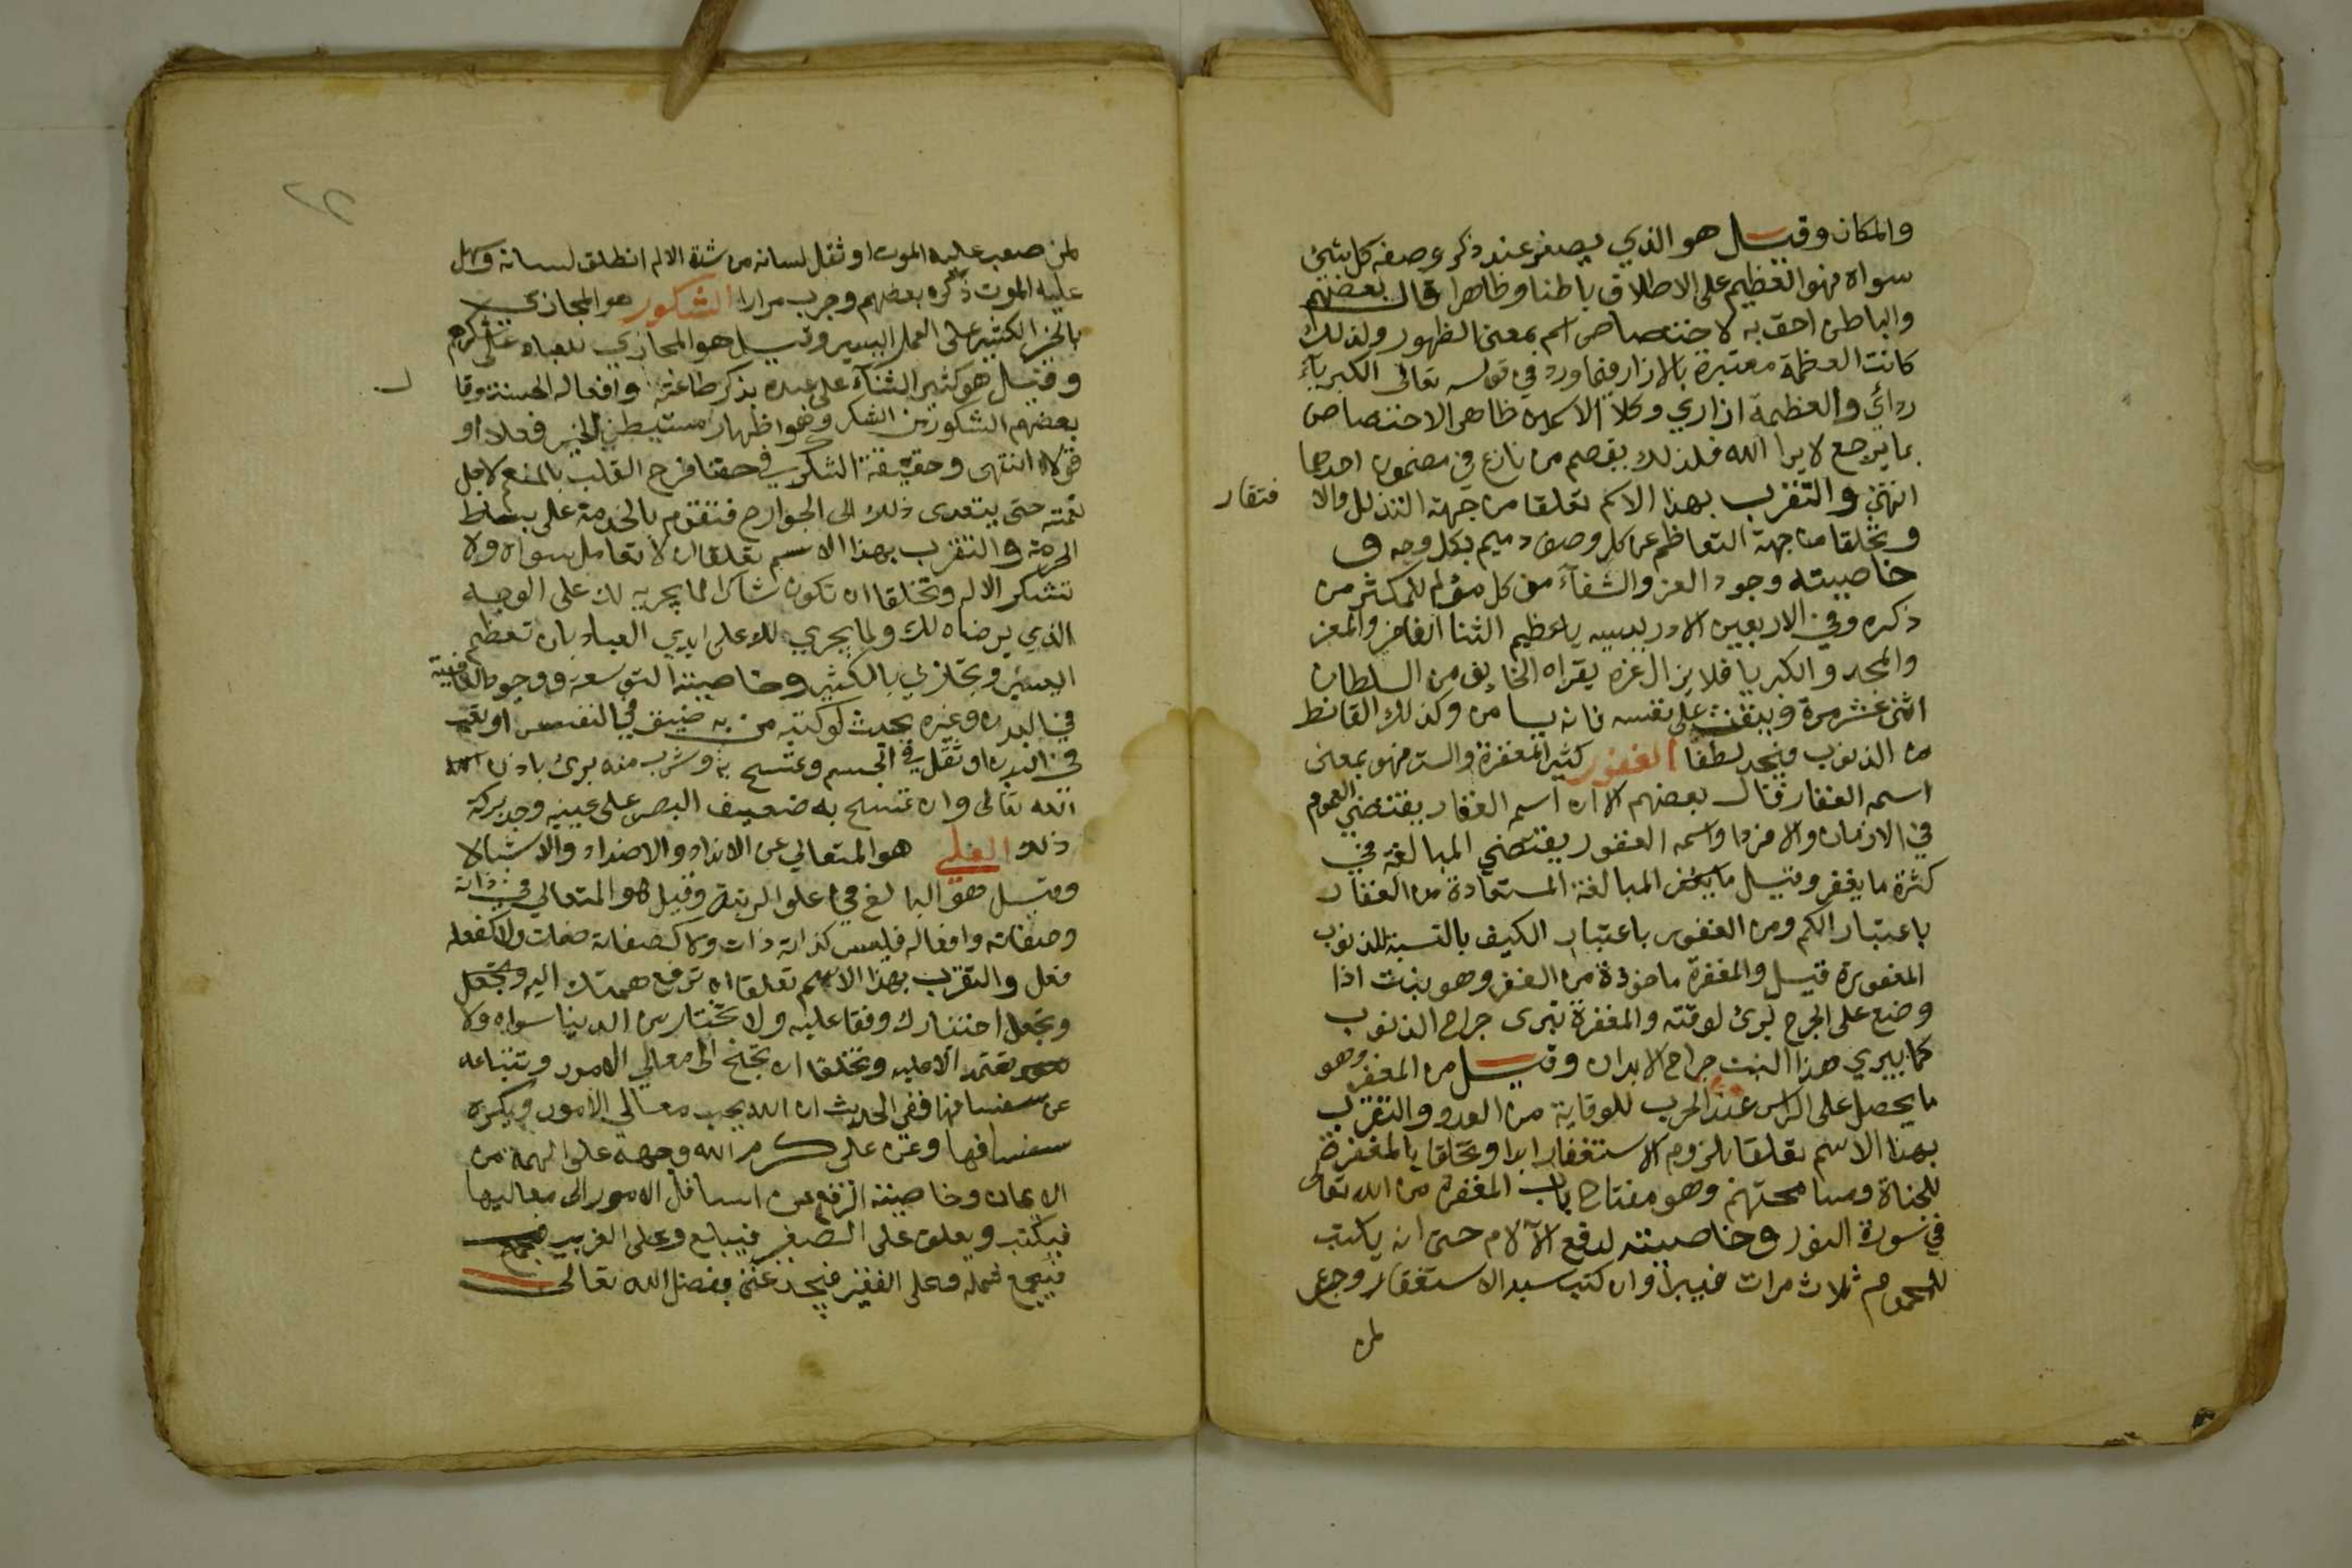 والمكان وقيل هو الذي يصغر عند ذكر وصفه كل شئ
سواه فهو العظيم على الاطلاق باطنا وظاهرا قال بعضهم
والباطن احق به لاختصاص اسم بمعنى الظهور ولذلك
كانت العظمة معتبرة بالازار فيما ورد في قوله تعالى الكبرياء
ردائي والعظمة ازاري وكلا الاسمين ظاهر الاختصاص
بما يرجع لا يرا الله فلذلك يقصم من نازع في مضمون احدهما
انتهى والتقرب بهذا الاسم تعلقا من جهة التذلل والا فتقار
وتخلقا من جهة التعاظم عن كل وصف ذميم بكل وجه و
خاصيته وجود العز والشفاء من كل مؤلم للمكثر من
ذكره وفي الاربعين الادريسيه يا عظيم الثنا الفاخر والعز
والمجد والكبريا فلا يزال عزه يقراه الخايف من السلطان
اثنى عشر مرة وينفث على نفسه فانه يامن وكذلك القانط
من الذنوب فيجد لطفا الغفور كثير المغفرة والستر فهو بمعنى
اسمه الغفار قال بعضهم الا ان اسمه الغفار يقتضي العموم
في الازمان والافراد واسمه الغفور يقتضي المبالغة في
كثرة ما يغفر وقيل المبالغة المستفادة من الغفار
باعتبار الكم ومن الغفور باعتبار الكيف بالنسبة للذنوب
المغفورة قيل والمغفرة ماخوذة من الغفر وهو نبت اذا
وضع على الجرح برئ لوقته والمغفرة تبرى جراح الذنوب
كما يبري هذا النبت جراح الابدان وقيل من المغفر وهو
ما يحصل على الراس عند الحرب للوقاية من العدو والتقرب
بهذا الاسم تعلقا بلزوم الاستغفار ابدا وتخلقا بالمغفرة
للجناة ومسامحتهم وهو مفتاح باب المغفرة من الله تعالى
في سورة النور وخاصيته لدفع الآلام حتى انه يكتب
للمحموم ثلاث مرات فيبرا وان كتب سيد الاستغفار وجرع
لمن
لمن صعب عليه الموت او ثقل لسانه من شدة الالم انطلق لسانه وسهل
عليه الموت ذكره بعضهم وجرب مرارا الشكور هو المجازي
بالخير الكثير على العمل اليسير وقيل هو المجازي للعباد على شكرهم
وقيل هو كثير الثناء على عبده بذكر طاعته وافعاله الحسنة وقا ل
بعضهم الشكور من الشكر وهو اظهار مستبطن الخير فعلا او
قولا انتهى وحقيقة الشكر في حقنا فرح القلب بالمنعم لاجل
نعمته حتى يتعدى ذلك الى الجوارح فتقوم بالخدمة على بساط
الحرمة والتقرب بهذا الاسم تعلقا ان لا تعامل سواه ولا
تشكر الا له وتخلقا ان تكون شاكرا لما يجريه لك على الوجه
الذي يرضاه لك ولما يجري لك على ايدي العباد بان تعظم
اليسير وتجازي بالكثير وخاصيته التوسعة ووجود العافية
في البدن وغيره بحيث لو كتبه من به ضيق في النفس او تعب
في البدن او ثقل في الجسم وتمسح به وشرب منه برئ باذن
الله تعالى وان تمسح به ضعيف البصر على عينيه وجد بركة
ذلك العلي هو المتعالي عن الانداد والاضداد والاشباه
وقيل هو البالغ في علو الرتبة وقيل هو المتعالي في ذاته
وصفاته وافعاله فليس كذاته ذات ولا كصفاته صفات ولا كفعله
فعل والتقرب بهذا الاسم تعلقا ان ترفع همتك اليه وتجعل
وتجعل اختيارك وقفا عليه ولا تختار من الدنيا سواه ولا
تعتمد الا عليه وتخلقا ان تجنح الى معالي الامور وتتباعد
عن سفسافها ففي الحديث ان الله يحب معالي الامور ويكره
سفسافها وعن علي كرم الله وجهه علو الهمة من
الايمان وخاصيته الرفع من اسافل الامور الى معاليها
فيكتب ويعلق على الصغير فيبلغ وعلى الغريب
فيجمع شمله وعلى الفقير فيجد غنى بفضل الله تعالى